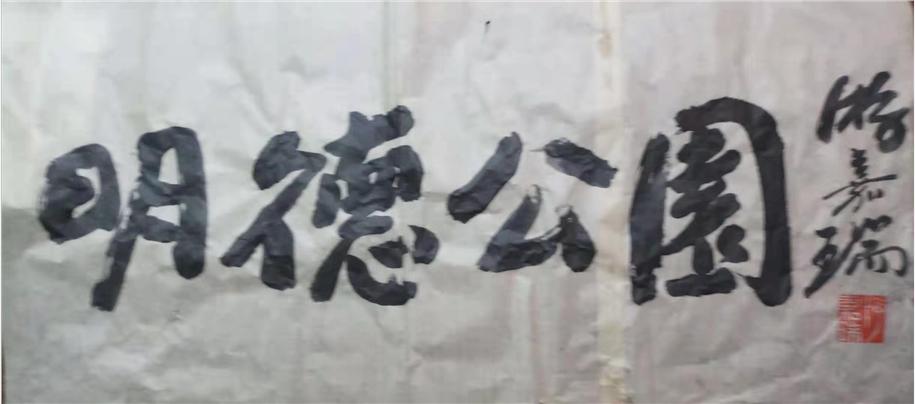 明德公園
游嘉瑞